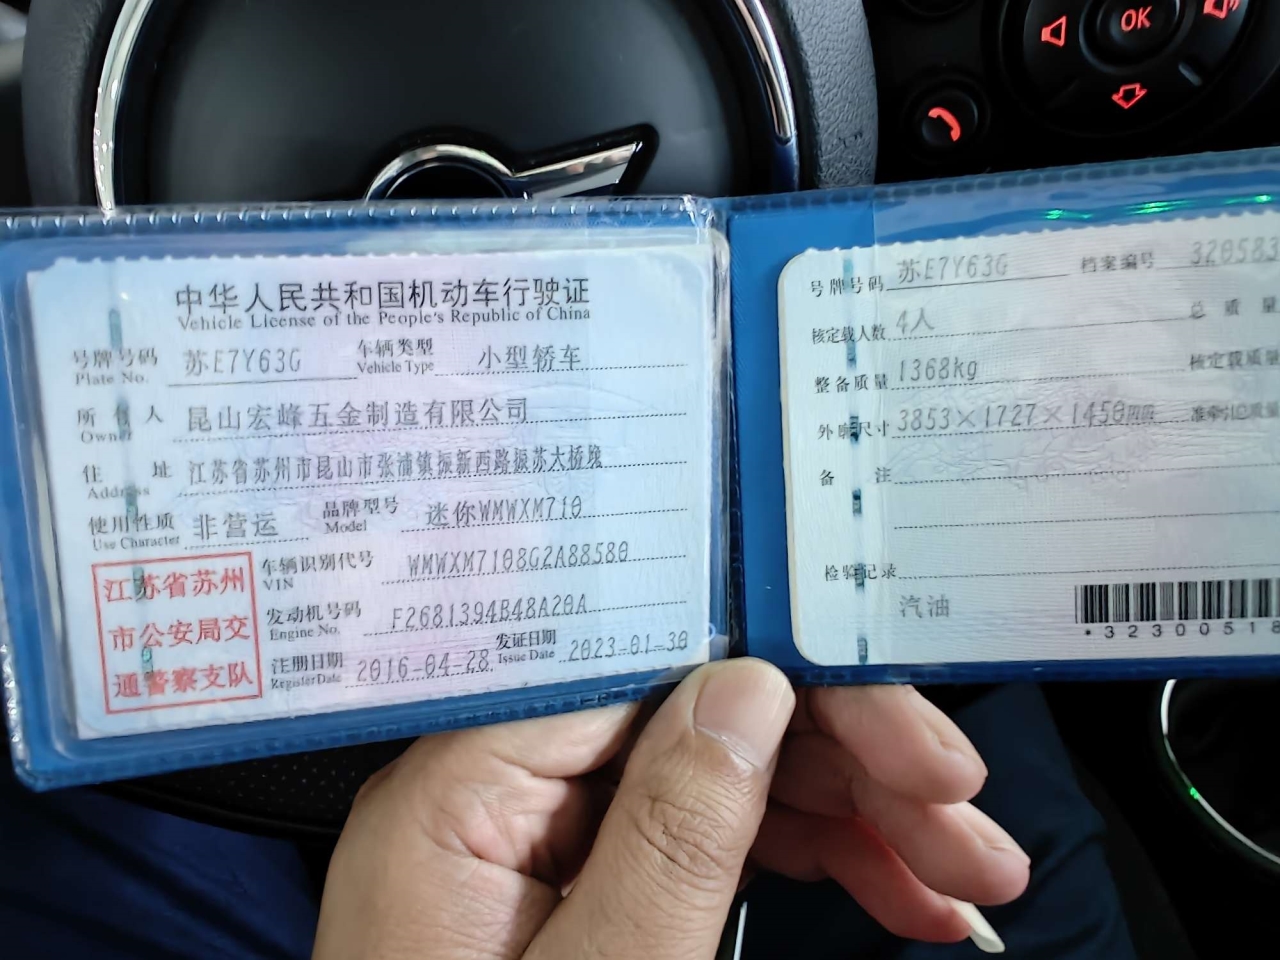 OK
中华人民共和国机动车行驶证
Vehicle License of the People's Republic of China
号牌号码 苏E7Y63G 车辆类型 小型轿车
Plate No. Vehicle Type
所有人 昆山宏峰五金制造有限公司
Owner
住址 江苏省苏州市昆山市张浦镇振新西路振苏大桥堍
Address
使用性质 非营运 品牌型号 迷你WMWXM710
Use Character Model
江苏省苏州
市公安局交
通警察支队
车辆识别代号 WMWXM7108G2A88580
VIN
发动机号码 F2681394B48A20A
Engine No.
注册日期 2016-04-28 发证日期 2023-01-30
Register Date Issue Date
号牌号码 苏E7Y63G 档案编号 320583
核定载人数 4人 总质量
整备质量 1368kg 核定载质量
外廓尺寸 3853×1727×1450 准牵引总质量
备注
检验记录
汽油
*32300518